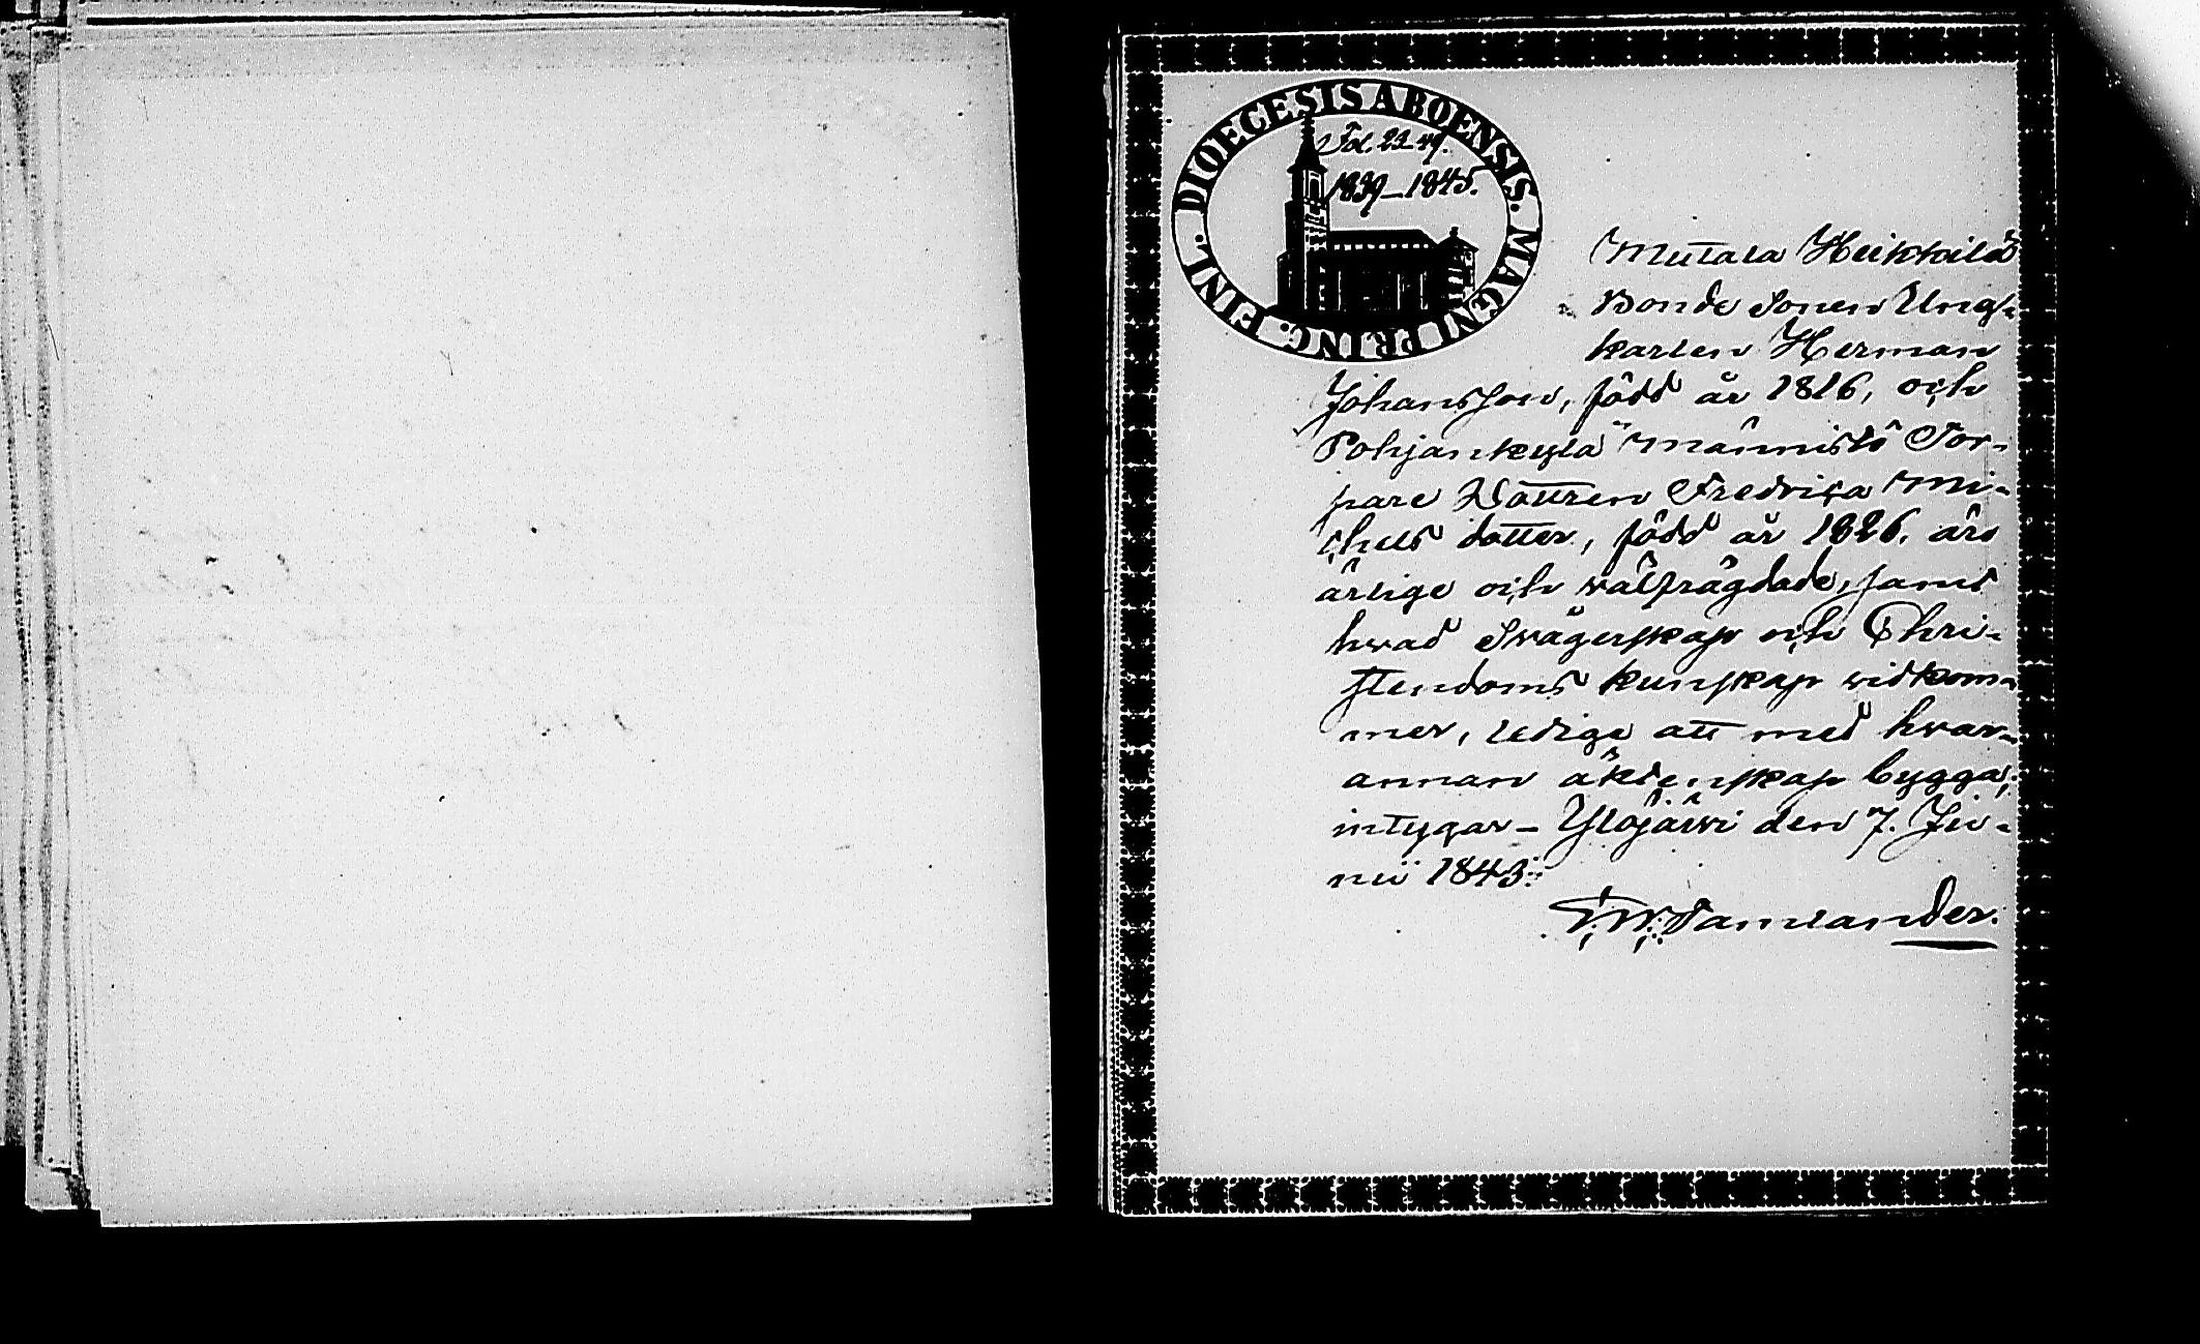 DIOECESIS ABOENSIS. MAGNI PRINC. FINL.
Fol. 23-49.
1839-1845.
Mutala Heikkilä
Bonde Sonen Ung-
karlen Herman
Johansson, född år 1816, och
Pohjankylä Männistö Tor-
pare Dottren Fredrica Mi-
chels dotter, född år 1826, äro
ärlige och välfrägdade, samt
hvad Svägerskap och Chri-
stendoms kunskap vidkom-
mer, ledige att med hvar-
annan äktenskap bygga,
intygar - Ylöjärvi den 7. Ju-
nii 1843:
Tamlander.